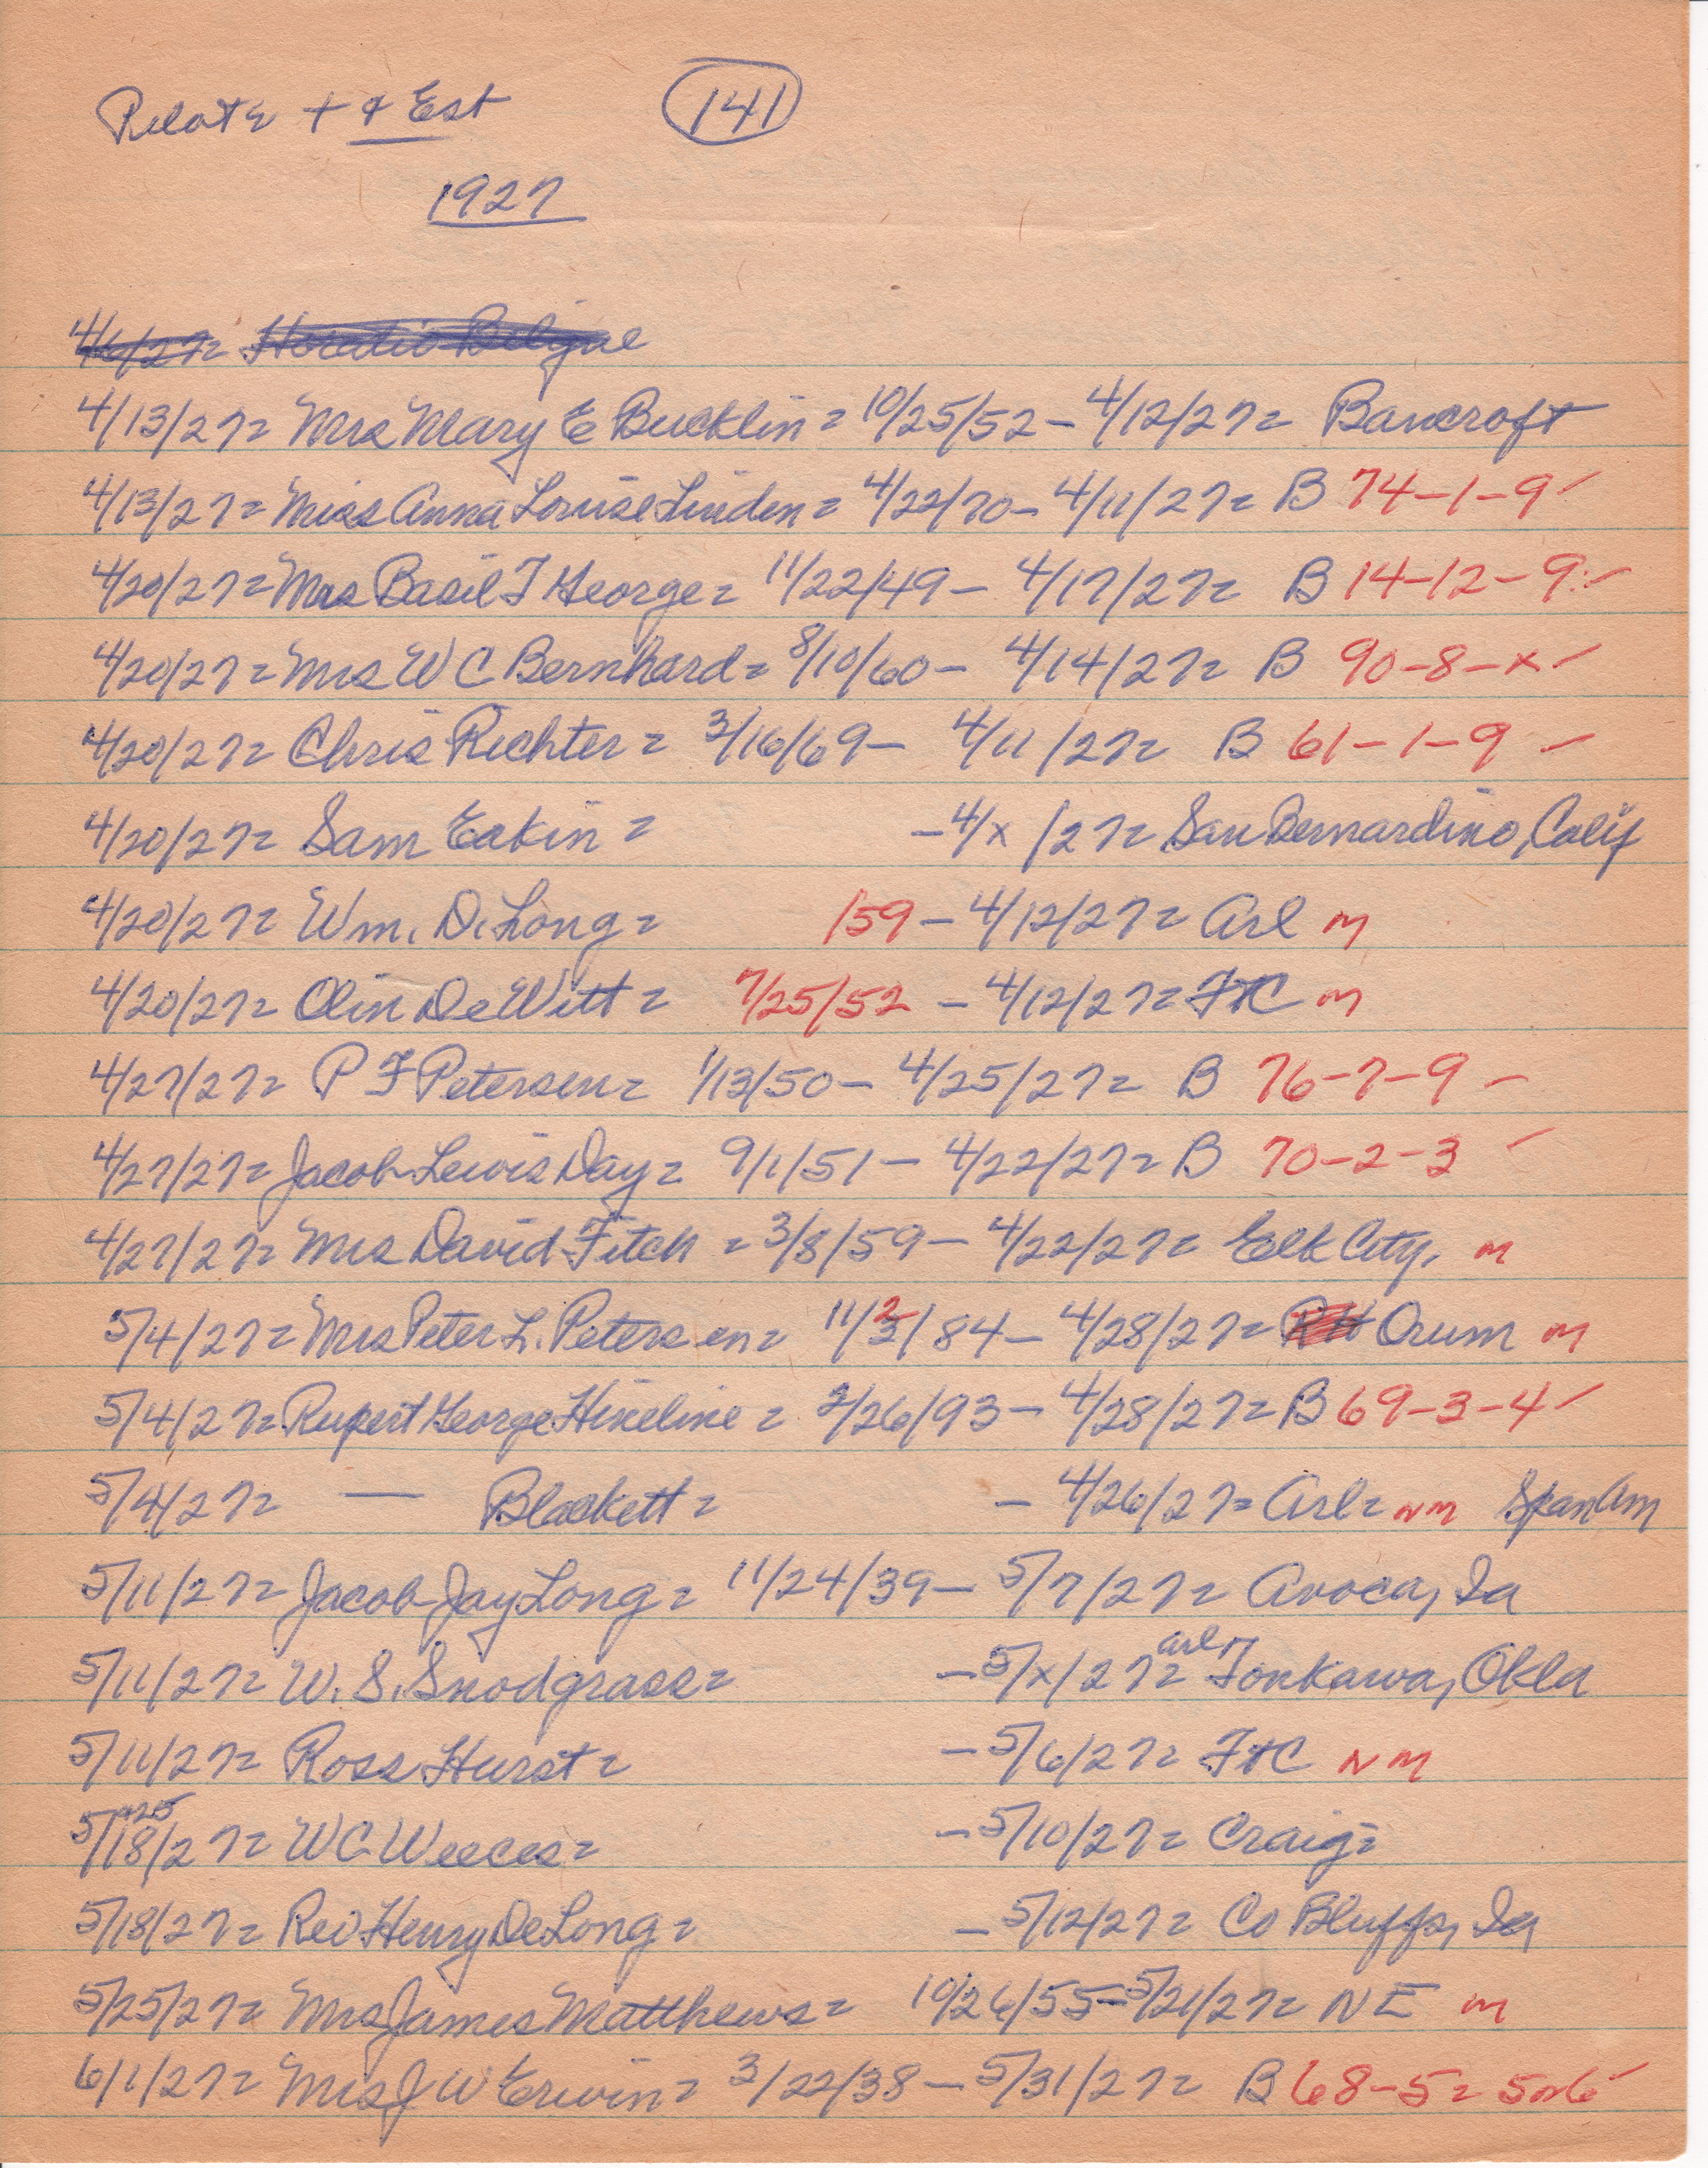 Pilot & + & Est 141
1927
4/6/27= Horatio
4/13/27= Mrs Mary E Bucklin = 10/25/52 - 4/12/27= Bancroft
4/13/27= Miss Anna Louise Linden = 4/22/70- 4/11/27= B 74-1-9 ✓
4/20/27= Mrs Basil T George = 11/22/49 - 4/17/27= B 14-12-9 ✓
4/20/27= Mrs W C Bernhard = 8/10/60 - 4/14/27= B 90-8-x ✓
4/20/27= Chris Richter = 3/16/69 - 4/11/27= B 61-1-9 ✓
4/20/27= Sam Eakin = - 4/x/27= San Bernardino, Calif
4/20/27= Wm. D. Long = /59 - 4/12/27= Arl m
4/20/27= Olin DeWitt = 7/25/52 - 4/12/27= FtC m
4/27/27= P F Petersen = 1/13/50 - 4/25/27= B 76-7-9 ✓
4/27/27= Jacob Lewis Day = 9/1/51 - 4/22/27= B 70-2-3 ✓
4/27/27= Mrs David Fitch = 3/8/59 - 4/22/27= Elk City, m
5/4/27= Mrs Peter L. Petersen = 11/2/84 - 4/28/27= Orum m
5/4/27= Rupert George Hineline = 2/26/93 - 4/28/27= B 69-3-4 ✓
5/4/27= — Blackett = - 4/26/27= Arl= NM SpanAm
5/11/27= Jacob Jay Long = 11/24/39 - 5/7/27= Avoca, Ia
5/11/27= W. S. Snodgrass = - 5/x/27= arl Tonkawa, Okla
5/11/27= Ross Hurst = - 5/6/27= FtC NM
5/18/27= W C Weeces = - 5/10/27= Craig=
5/18/27= Rev Henry DeLong = - 5/12/27= Co Bluffs, Ia
5/25/27= Mrs James Matthews = 10/26/55 - 5/21/27= NE m
6/1/27= Mrs J W Erwin = 3/22/38 - 5/31/27= B 68-5= 5or6 ✓